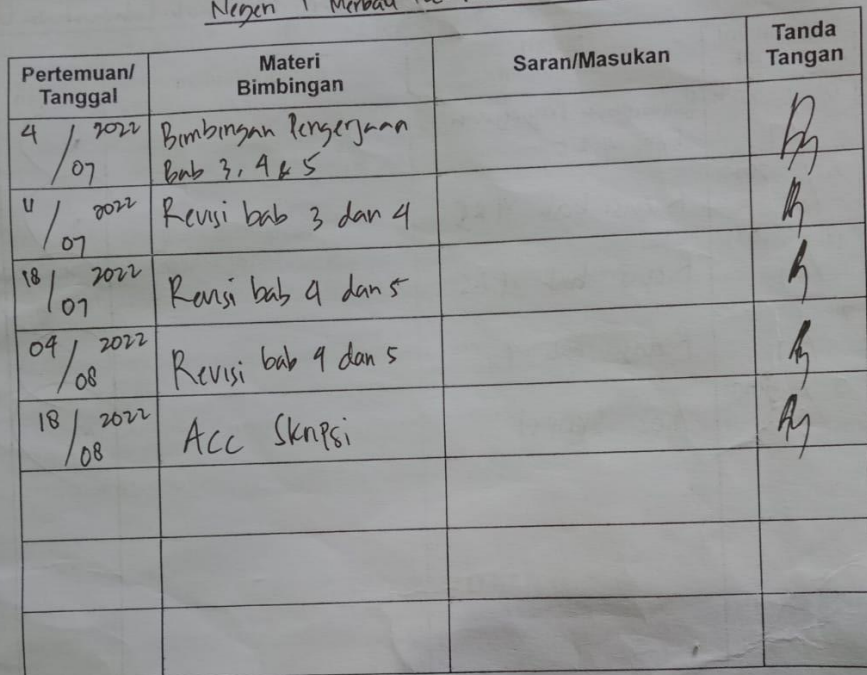 Negeri 1 Merbau
Pertemuan/ Tanggal
Materi Bimbingan
Saran/Masukan
Tanda Tangan
4/07 2022
Bimbingan Pengerjaan
Bab 3, 4 & 5
11/07 2022
Revisi bab 3 dan 4
18/07 2022
Revisi bab 4 dan 5
04/08 2022
Revisi bab 4 dan 5
18/08 2022
ACC Skripsi